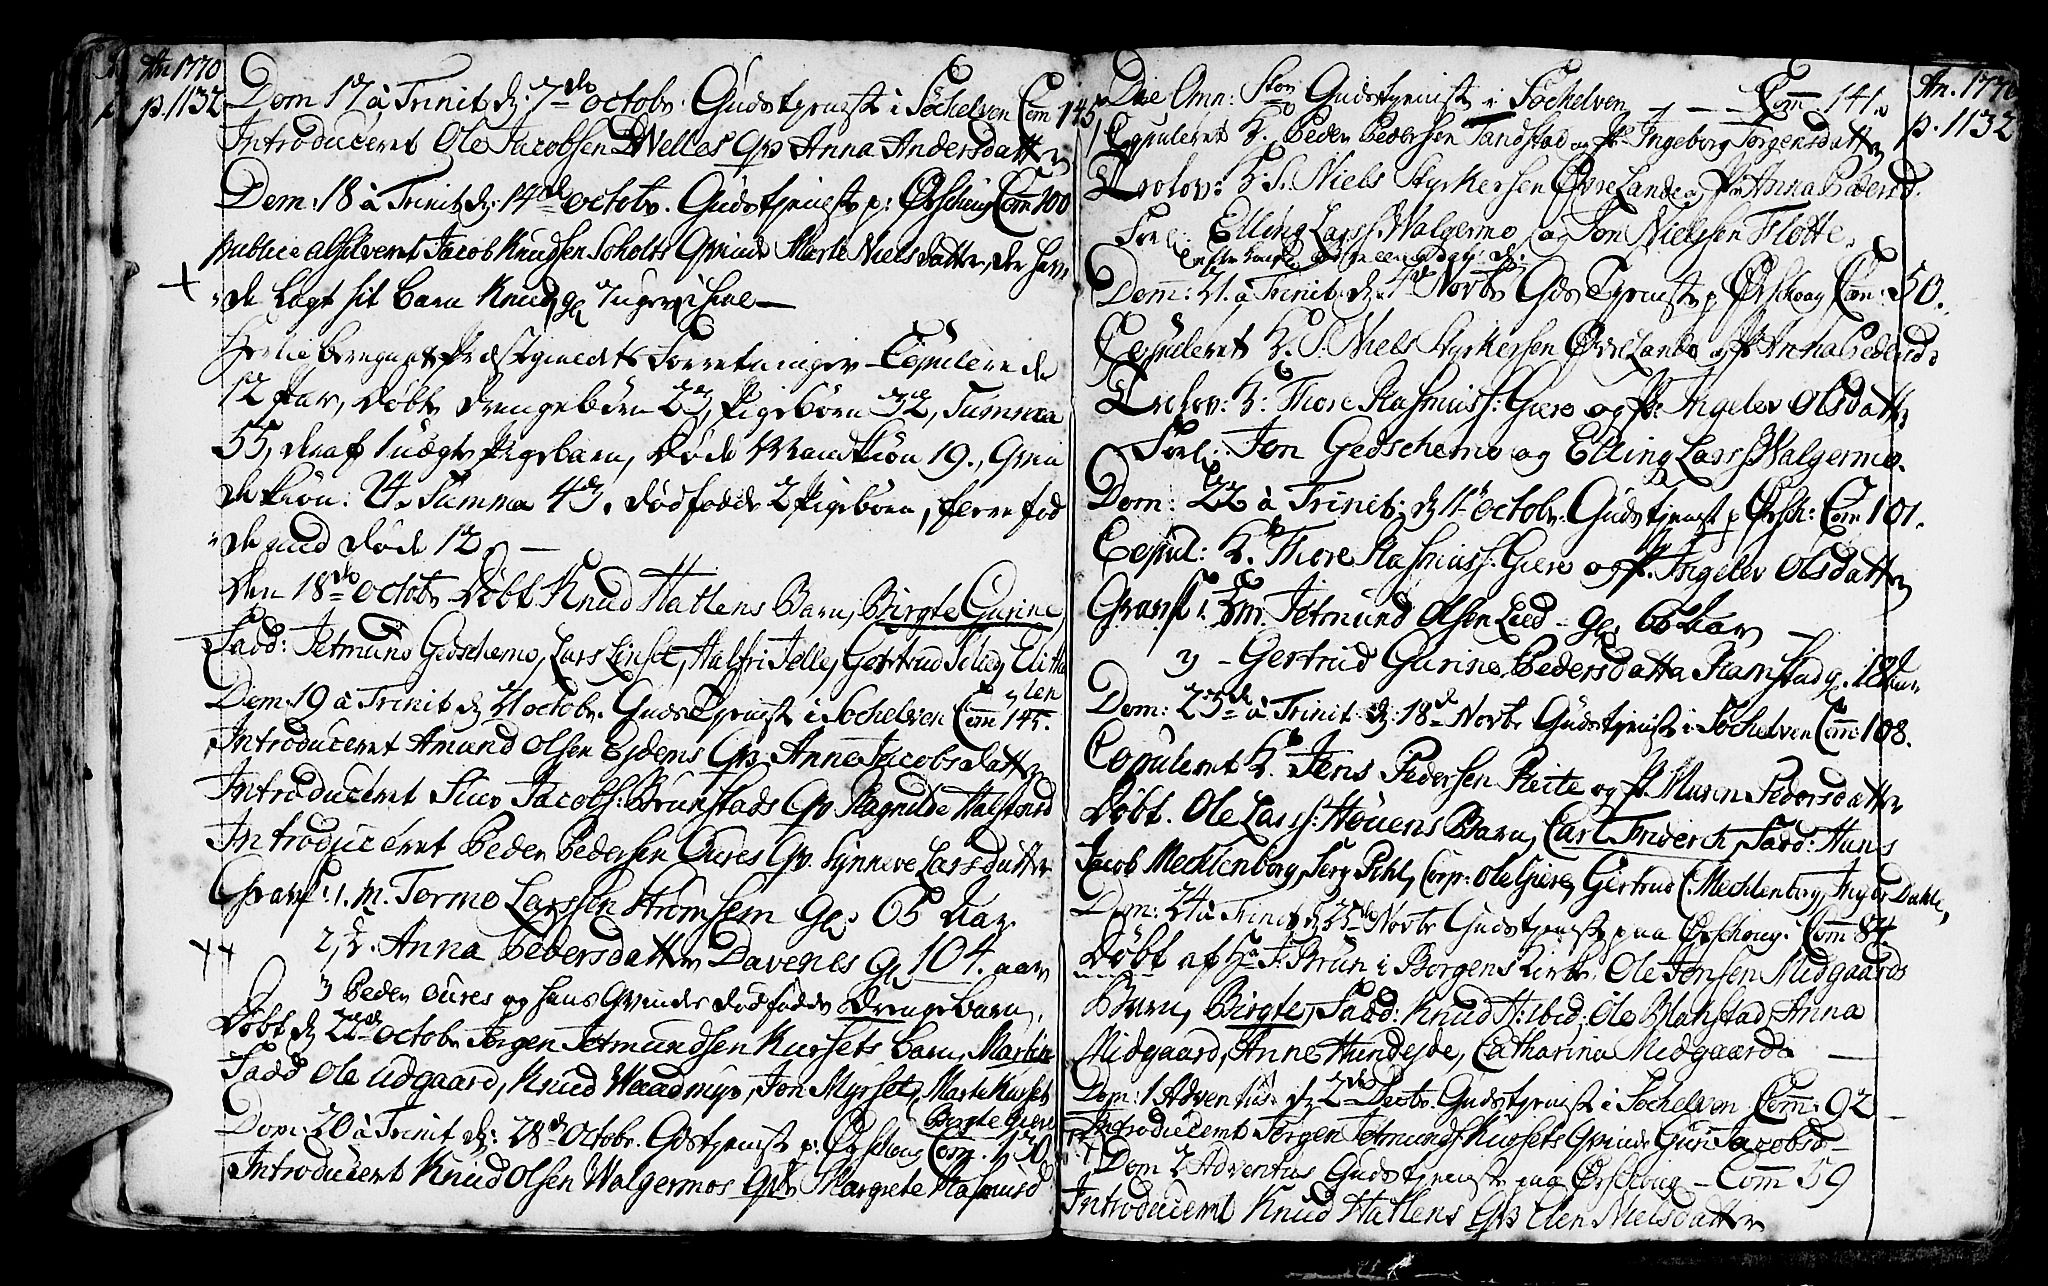 An 1770
p. 1132
Dom 17 à Trinit d: 7de octobr. Gudstjeneste i Søchelven Com 145
Introduceret Ole Jacobsen Welles Qvs Anna Andersdatter
Dom: 18 à Trinit d: 14de octobr. Gudstjeneste p: Ørschoug Com 100
publice absolveret Jacob Knudsen Soholts Qvinde Marte Nielsdatter, der hav
de lagt sit barn Knud
12 Par, døbte drengebörn 23, Pigebörn 32, Summa
55, deraf 1 uægte Pigebarn, døde Mandkiön 19., Qvin
dekiön. 24. Summa 43. dødfødde 2 Pigebörn, flere fød
de end døde 12
Den 18de octobr Døbt Knud Hatlens Barn, Birgte Gurine,
Fadd: Jetmund Giöschemo, Lars Linset, Halfri Jelle, Gertrud Elling Elisa
Hatlen
Dom 19 à Trinit d 21 octobr. Gudstjeneste i Søchelven Com 145.
Introduceret Amund Olsen Ejdems Qvs Anne Jacobsdatter
Introduceret Siur Jacobs: Brunstads Qv Ragnilde Halstensd
Introduceret Peder Pedersen Oures Qv. Synneve Larsdatter
Gravf: 1. m. Tormo Larssen Strömsem gl: 65 aar
2, Q. Anna Pedersdatter Davenes gl 104. aar
3 Peder Oures og hans Qvindes dødfødde Drengebarn,
Døbt d 22de octobr Jørgen Jetmundsen Kursets barn, Martin
Fadd Ole Udgaard, Knud Waadmyr, Jon Myrset, Marte Kurset
Birgte Giere
Dom: 20 à Trinit d: 28de octobr. Gdstjeneste p: Ørschoug Com. 130
Introduceret Knud Olsen Walgermos Qvs Margrete Rasmusd
An. 1770
p. 1132
Die Omn: Ston Gudstjeneste i Søchelven Com: 141.
Copuleret K. Peder Pedersen Tandstad og P. Ingeborg Jørgensdatter
Trolov: K. S. Niels Styrkersen Øvre Lande og P. Anna Pedersd.
Forl. Elling Larss. Walgermo og Jon Nielsen Flotte.
Dom: 21. à Trinit: d. 4de Novbr Gds Tjeneste p Ørschoug Com: 50.
Copuleret K. S. Niels Styrkersen Øvre Lande og P. Anna Pedersd:
Trolov: K: Thore Rasmuss: Giere og P: Ingelev Olsdatter
Forl: Jon Giöschemo og Elling Larss. Walgermo.
Dom: 22 à Trinit: d 11te octobr. Gudstjenest p Ørsch: Com 101.
Copul: K. Thore Rasmuss: Giere og P. Ingelev Olsdatter
Gravf. 1. Em. Jetmund Olsen Lied – gl: 66 aar
2 – Gertrud Gurine Pedersdatter Ramstad g. 18
Dom: 23de à Trinit: d: 18de Novbr Gudstjeneste i Søchelven Com: 108.
Copuleret K. Jens Pedersen Reite og P. Maren Pedersdatter
Døbt. Ole Larss: Höuens Barn, Carl Friderch, Fadd: Hans
Jacob Mecklenborg, Serg Pihl, Corp: Ole Giere, Gertrud C. Mechlenborg, Inger Dahle,
Dom: 24 à Trinit d 25de Novbr Gudstjeneste paa Ørschoug. Com 84.
Døbt af Hr. F: Brun i Borgens Kirke. Ole Jensen Midgaards
Barn, Birgte, Fadd: Knud H: ibid: Ole Blahstad, Anna
Midgaard, Anne Hundejde, Catharina Midgaard
Dom: 1 Adventus d 2de Decbr. Gudstjeneste i Søchelven Com: 92
Introduceret Jørgen Jetmunds Kursets Qvinde Guri Jacobsd
Dom 2 Adventus Gudstjeneste paa Ørschoug – Com 59
Introduceret Knud Hatlens Qvs Elen Nielsdatter